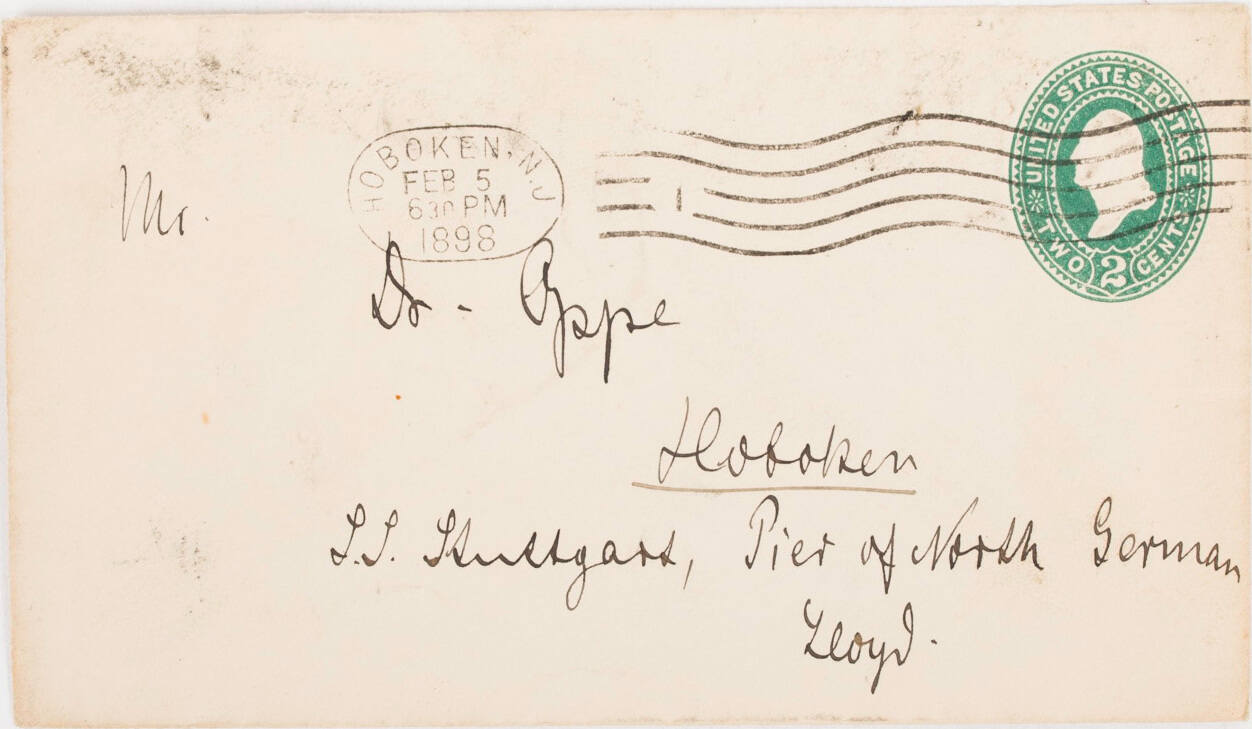 HOBOKEN, N.J.
FEB 5
630 PM
1898
1
UNITED STATES POSTAGE
TWO 2 CENTS
Mr.
Dr. Oppe
Hoboken
S.S. Stuttgart, Pier of North German
Lloyd.